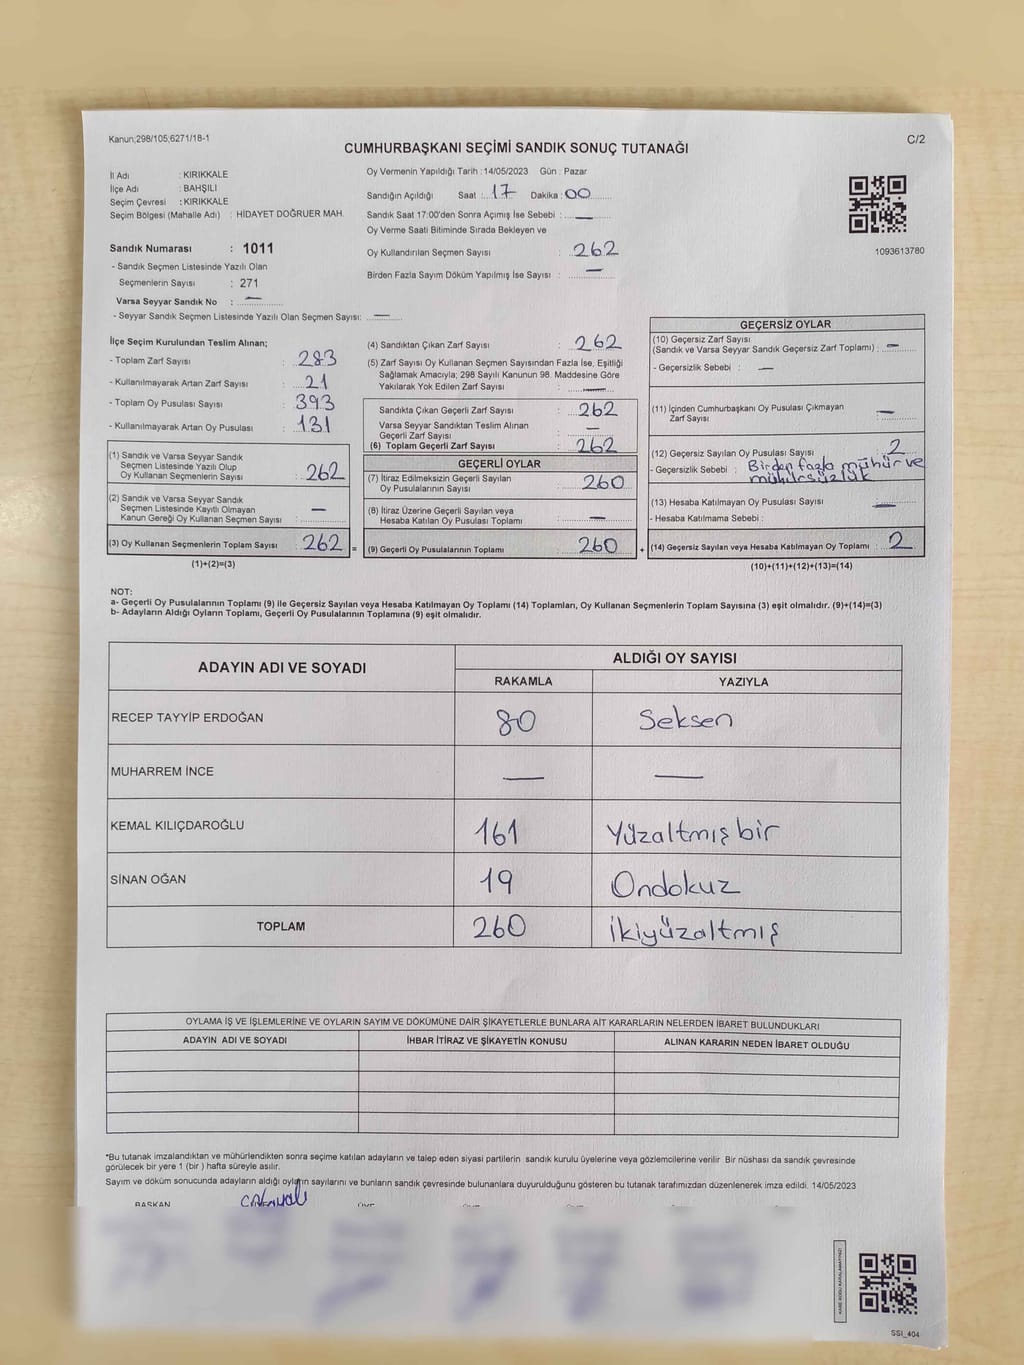 Kanun;298/105;6271/18-1
C/2
CUMHURBAŞKANI SEÇİMİ SANDIK SONUÇ TUTANAĞI
İl Adı : KIRIKKALE
İlçe Adı : BAHŞILI
Seçim Çevresi : KIRIKKALE
Seçim Bölgesi (Mahalle Adı) : HİDAYET DOĞRUER MAH.
Sandık Numarası : 1011
- Sandık Seçmen Listesinde Yazılı Olan
Seçmenlerin Sayısı : 271
Varsa Seyyar Sandık No : —
- Seyyar Sandık Seçmen Listesinde Yazılı Olan Seçmen Sayısı: —
Oy Vermenin Yapıldığı Tarih : 14/05/2023 Gün : Pazar
Sandığın Açıldığı Saat : 17 Dakika : 00
Sandık Saat 17:00'den Sonra Açımış İse Sebebi : —
Oy Verme Saati Bitiminde Sırada Bekleyen ve
Oy Kullandırılan Seçmen Sayısı : 262
Birden Fazla Sayım Döküm Yapılmış İse Sayısı : —
1093613780
İlçe Seçim Kurulundan Teslim Alınan;
- Toplam Zarf Sayısı : 283
- Kullanılmayarak Artan Zarf Sayısı : 21
- Toplam Oy Pusulası Sayısı : 393
- Kullanılmayarak Artan Oy Pusulası : 131
(1) Sandık ve Varsa Seyyar Sandık
Seçmen Listesinde Yazılı Olup
Oy Kullanan Seçmenlerin Sayısı : 262
(2) Sandık ve Varsa Seyyar Sandık
Seçmen Listesinde Kayıtlı Olmayan
Kanun Gereği Oy Kullanan Seçmen Sayısı : —
(3) Oy Kullanan Seçmenlerin Toplam Sayısı : 262
(1)+(2)=(3)
=
(4) Sandıktan Çıkan Zarf Sayısı : 262
(5) Zarf Sayısı Oy Kullanan Seçmen Sayısından Fazla İse, Eşitliği
Sağlamak Amacıyla; 298 Sayılı Kanunun 98. Maddesine Göre
Yakılarak Yok Edilen Zarf Sayısı : —
Sandıkta Çıkan Geçerli Zarf Sayısı : 262
Varsa Seyyar Sandıktan Teslim Alınan
Geçerli Zarf Sayısı : —
(6) Toplam Geçerli Zarf Sayısı : 262
GEÇERLİ OYLAR
(7) İtiraz Edilmeksizin Geçerli Sayılan
Oy Pusulalarının Sayısı : 260
(8) İtiraz Üzerine Geçerli Sayılan veya
Hesaba Katılan Oy Pusulası Toplamı : —
(9) Geçerli Oy Pusulalarının Toplamı : 260
+
GEÇERSİZ OYLAR
(10) Geçersiz Zarf Sayısı
(Sandık ve Varsa Seyyar Sandık Geçersiz Zarf Toplamı) : —
- Geçersizlik Sebebi : —
(11) İçinden Cumhurbaşkanı Oy Pusulası Çıkmayan
Zarf Sayısı : —
(12) Geçersiz Sayılan Oy Pusulası Sayısı : 2
- Geçersizlik Sebebi : Birden fazla mühür ve
mühürsüzlük
(13) Hesaba Katılmayan Oy Pusulası Sayısı : —
- Hesaba Katılmama Sebebi :
(14) Geçersiz Sayılan veya Hesaba Katılmayan Oy Toplamı : 2
(10)+(11)+(12)+(13)=(14)
NOT:
a- Geçerli Oy Pusulalarının Toplamı (9) ile Geçersiz Sayılan veya Hesaba Katılmayan Oy Toplamı (14) Toplamları, Oy Kullanan Seçmenlerin Toplam Sayısına (3) eşit olmalıdır. (9)+(14)=(3)
b- Adayların Aldığı Oyların Toplamı, Geçerli Oy Pusulalarının Toplamına (9) eşit olmalıdır.
ADAYIN ADI VE SOYADI ALDIĞI OY SAYISI
RAKAMLA YAZIYLA
RECEP TAYYİP ERDOĞAN 80 Seksen
MUHARREM İNCE — —
KEMAL KILIÇDAROĞLU 161 Yüzaltmış bir
SİNAN OĞAN 19 Ondokuz
TOPLAM 260 İkiyüzaltmış
OYLAMA İŞ VE İŞLEMLERİNE VE OYLARIN SAYIM VE DÖKÜMÜNE DAİR ŞİKAYETLERLE BUNLARA AİT KARARLARIN NELERDEN İBARET BULUNDUKLARI
ADAYIN ADI VE SOYADI İHBAR İTİRAZ VE ŞİKAYETİN KONUSU ALINAN KARARIN NEDEN İBARET OLDUĞU
*Bu tutanak imzalandıktan ve mühürlendikten sonra seçime katılan adayların ve talep eden siyasi partilerin sandık kurulu üyelerine veya gözlemcilerine verilir. Bir nüshası da sandık çevresinde
görülecek bir yere 1 (bir ) hafta süreyle asılır.
Sayım ve döküm sonucunda adayların aldığı oyların sayılarını ve bunların sandık çevresinde bulunanlara duyurulduğunu gösteren bu tutanak tarafımızdan düzenlenerek imza edildi. 14/05/2023
BAŞKAN
SSI_404